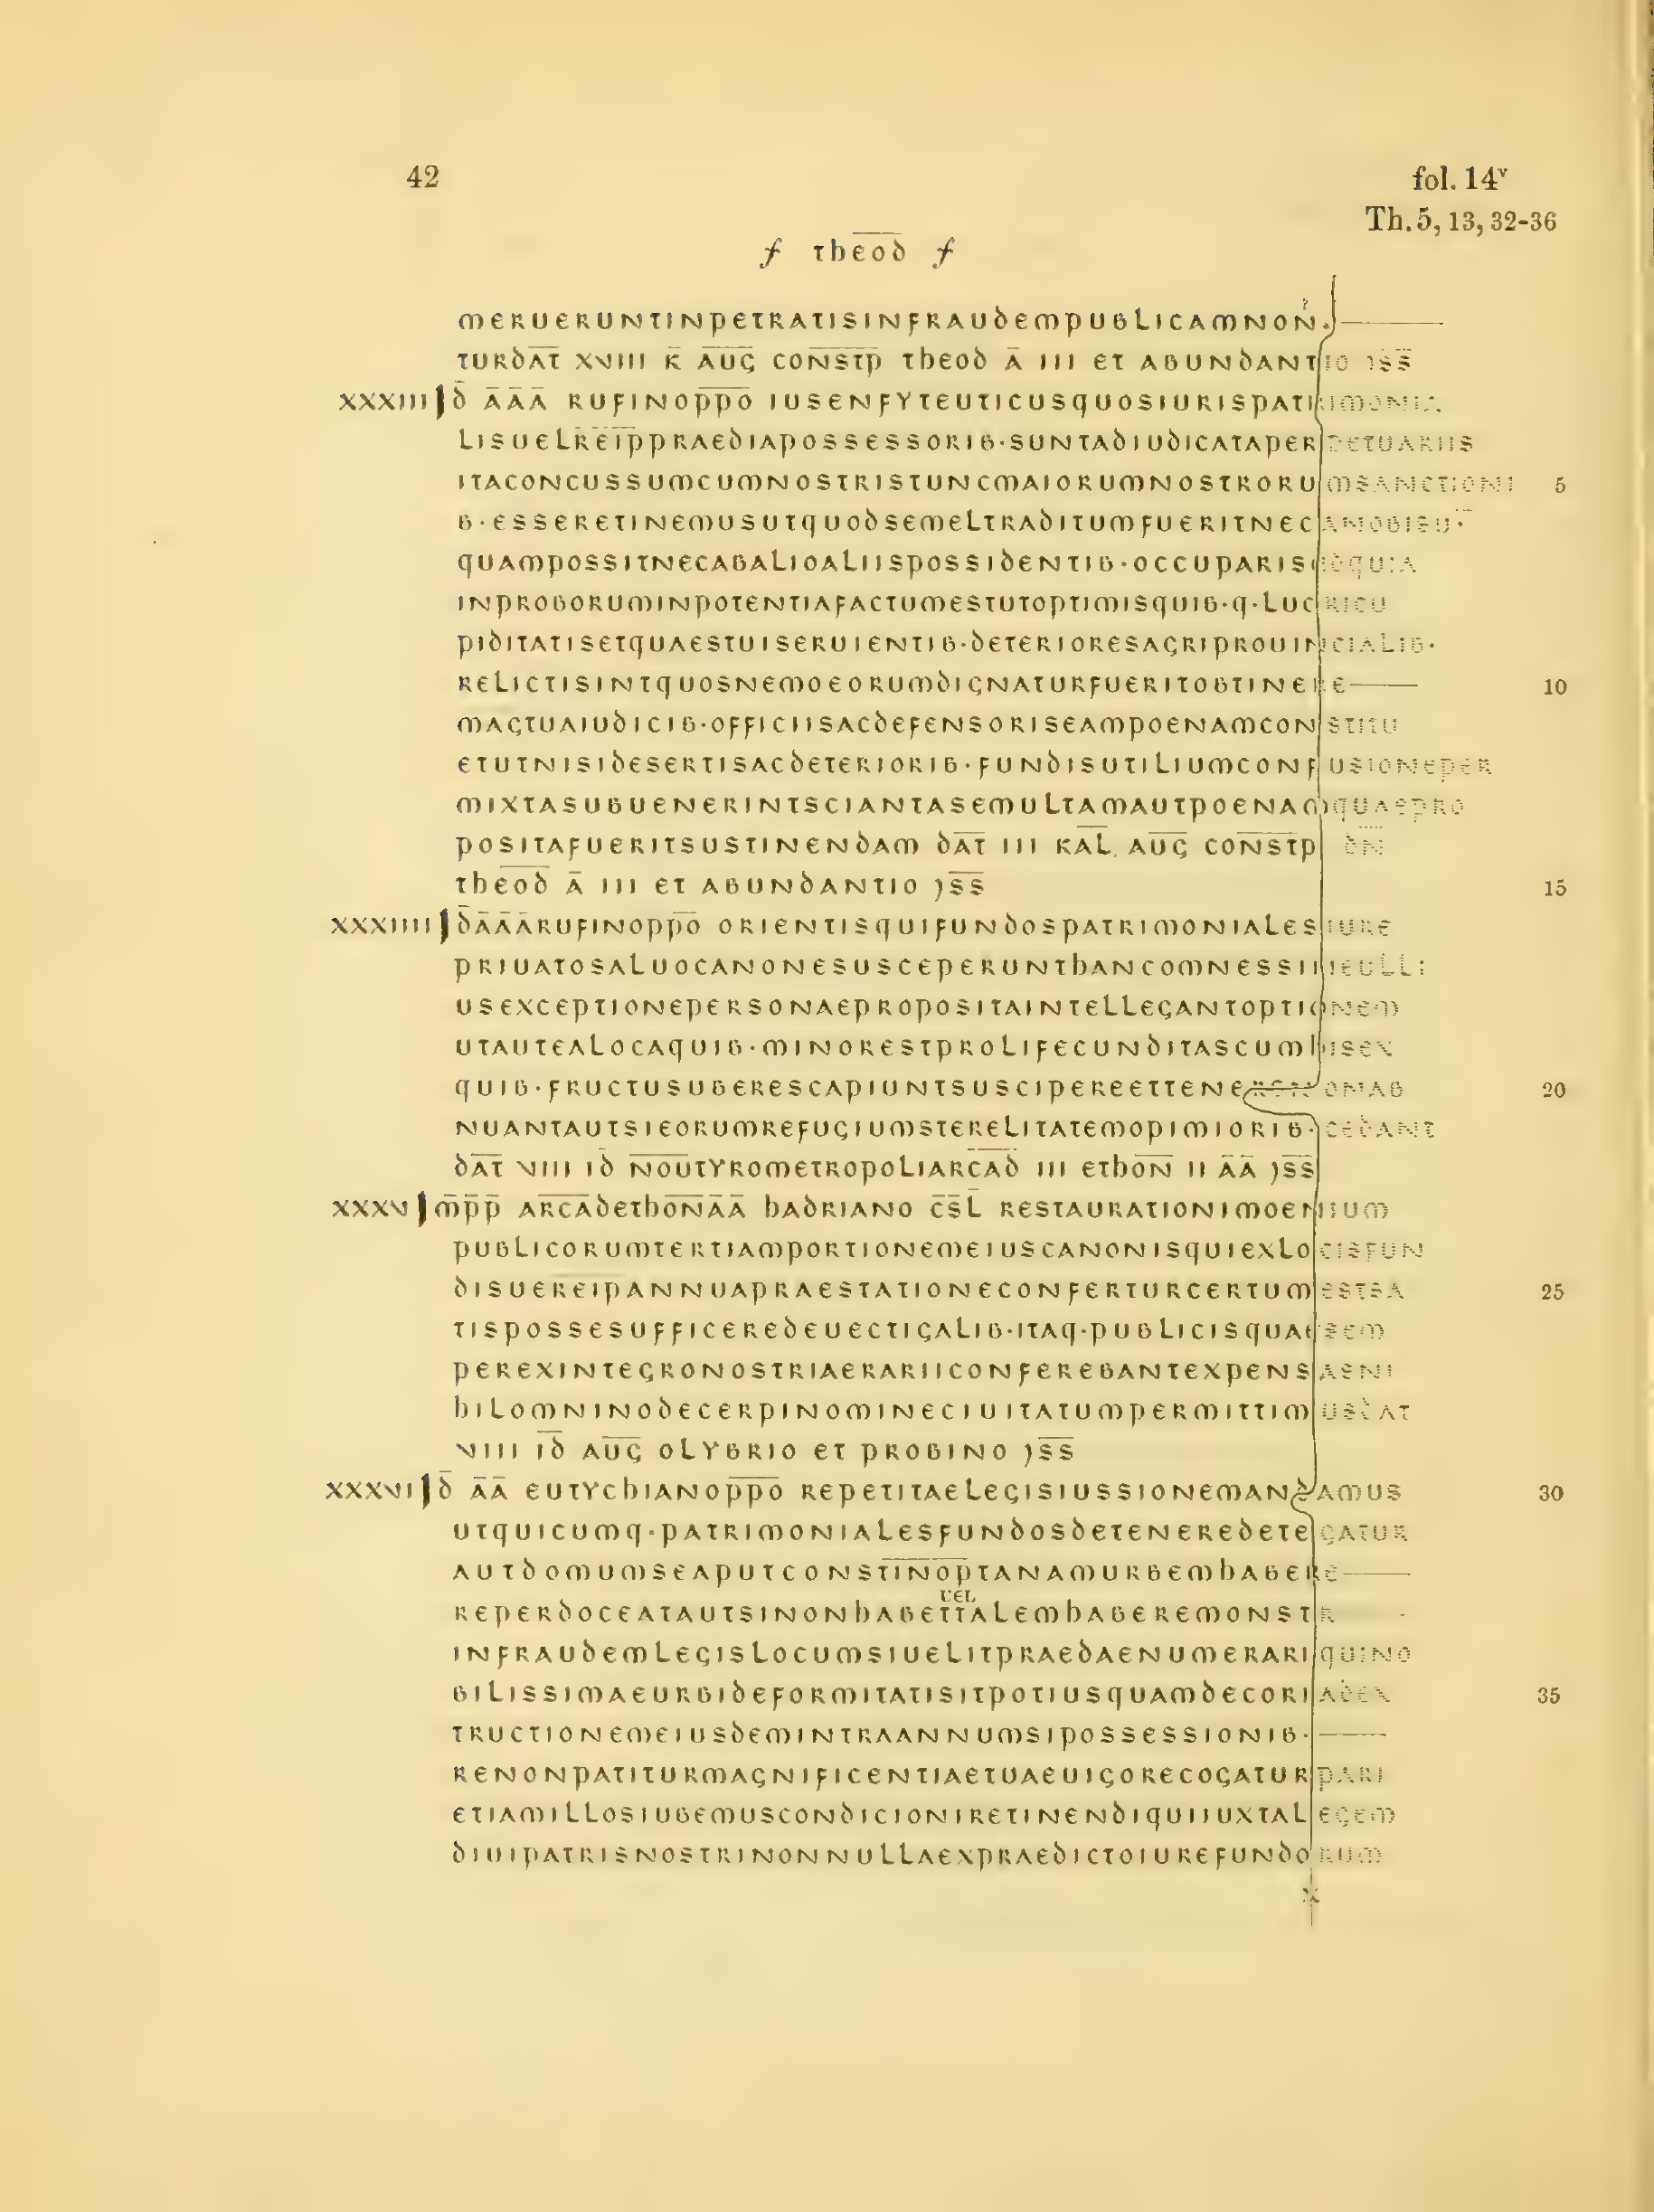 42
fol. 14v
Th. 5, 13, 32-36
ƒ theod̅ ƒ
MERUERUNTINPETRATISINFRAUDEMPUBLICAMNON.
TURDAT̅ XVIIII K̅ AUG̅ CONSTP̅ THEOD A̅ III ET ABUNDANTIO )S̅S̅
XXXIII D̅ A̅A̅A̅ RUFINOP̅P̅O̅ IUSENFYTEUTICUSQUOSIURISPATRIMONIA
LISUELR̅E̅I̅P̅PRAEDIAPOSSESSORIB·SUNTADIUDICATAPERPETUARIIS
ITACONCUSSUMCUMNOSTRISTUNCMAIORUMNOSTRORUMSANCTIONI 5
B·ESSERETINEMUSUTQUODSEMELTRADITUMFUERITNECANOBISU·
QUAMPOSSITNECABALIOALIISPOSSIDENTIB·OCCUPARISEDQUIA
INPROBORUMINPOTENTIAFACTUMESTUTOPTIMISQUIB·Q·LUCRICU
PIDITATISETQUAESTUISERUIENTIB·DETERIORESAGRIPROUINCIALIB·
RELICTISINTQUOSNEMOEORUMDIGNATURFUERITOBTINERE 10
MAGTUAIUDICIB·OFFICIISACDEFENSORISEAMPOENAMCONSTITU
ETUTNISIDESERTISACDETERIORIB·FUNDISUTILIUMCONFUSIONEPER
MIXTASUBUENERINTSCIANTASEMULTAMAUTPOENAMQUAEPRO
POSITAFUERITSUSTINENDAM DA̅T̅ III KAL̅. AUG̅ CONSTP̅ D̅N̅
THEOD̅ A̅ III ET ABUNDANTIO )S̅S̅ 15
XXXIIII D̅A̅A̅A̅RUFINOPP̅O̅ ORIENTISQUIFUNDOSPATRIMONIALESIURE
PRIUATOSALUOCANONESUSCEPERUNTHANCOMNESSINEULLI
USEXCEPTIONEPERSONAEPROPOSITAINTELLEGANTOPTIONEM
UTAUTEALOCAQUIB·MINORESTPROLIFECUNDITASCUMHISEX
QUIB·FRUCTUSUBERESCAPIUNTSUSCIPEREETTENERENONAB 20
NUANTAUTSIEORUMREFUGIUMSTERELITATEMOPIMIORIB·CEDANT
DA̅T̅ VIIII ID̅ NOU̅TYROMETROPOLIARCAD̅ III ETHON̅ II A̅A̅ )S̅S̅
XXXV M̅P̅P̅ ARCA̅DETHON̅A̅A̅ HADRIANO C̅S̅L̅ RESTAURATIONIMOENIUM
PUBLICORUMTERTIAMPORTIONEMEIUSCANONISQUIEXLOCISFUN
DISUER̅E̅I̅P̅ANNUAPRAESTATIONECONFERTURCERTUMESTSA 25
TISPOSSESUFFICEREDEUECTIGALIB·ITAQ·PUBLICISQUAESEM
PEREXINTEGRONOSTRIAERARIICONFEREBANTEXPENSASNI
HILOMNINODECERPINOMINECIUITATUMPERMITTIMUSDAT
VIIII ID̅ AUG̅ OLYBRIO ET PROBINO )S̅S̅
XXXVI D̅ A̅A̅ EUTYCHIANOP̅P̅O̅ REPETITAELEGISIUSSIONEMANDAMUS 30
UTQUICUMQ·PATRIMONIALESFUNDOSDETENEREDETEGATUR
AUTDOMUMSEAPUTCONST̅I̅N̅O̅P̅TANAMURBEMHABERE
UEL
REPERDOCEATAUTSINONHABETTALEMHABEREMONSTR
INFRAUDEMLEGISLOCUMSIUELITPRAEDAENUMERARIQUINO
BILISSIMAEURBIDEFORMITATISITPOTIUSQUAMDECORIADEX 35
TRUCTIONEMEIUSDEMINTRAANNUMSIPOSSESSIONIB·
RENONPATITURMAGNIFICENTIAETUAEUIGORECOGATURPARI
ETIAMILLOSIUBEMUSCONDICIONIRETINENDIQUIIUXTALEGEM
DIUIPATRISNOSTRINONNULLAEXPRAEDICTOIUREFUNDORUM